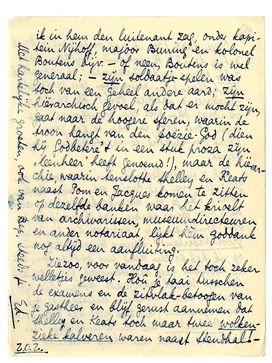 ik in hem den luitenant zag, onder kapi-
tein Nijhoff, majoor Buning en kolonel
Boutens zijn – of neen, Boutens is wel
generaal; – zijn soldaatje-spelen was
toch van een geheel andere aard; zijn
hiërarchisch gevoel, als dat er mocht zijn,
gaat naar de hoogere sferen, waarin de
troon hangt van den poëzie-God (dien
hij Godbeter't in een stuk proza zijn
„leenheer" heeft genoemd!), maar de hiërar-
chie, waarin tenslotte Shelley en Keats
naast Tom en Jacques komen te zitten
op dezelfde banken waar het krioelt
van archivarissen, museumdirecteuren
en ander notariaat, lijkt hem goddank
nog altijd een aanfluiting.
Ziezoo, voor vandaag is het toch zeker
welletjes geweest. Hou je taai tusschen
de examens en de zitvlak-betoogen van
je gastheer en blijf gerust aannemen dat
Shelley en Keats toch maar twee wolken-
zieke kalveren waren naast Stendhal –
Met hartelijke groeten, ook van Bep, steeds je E.
Z.O.Z.